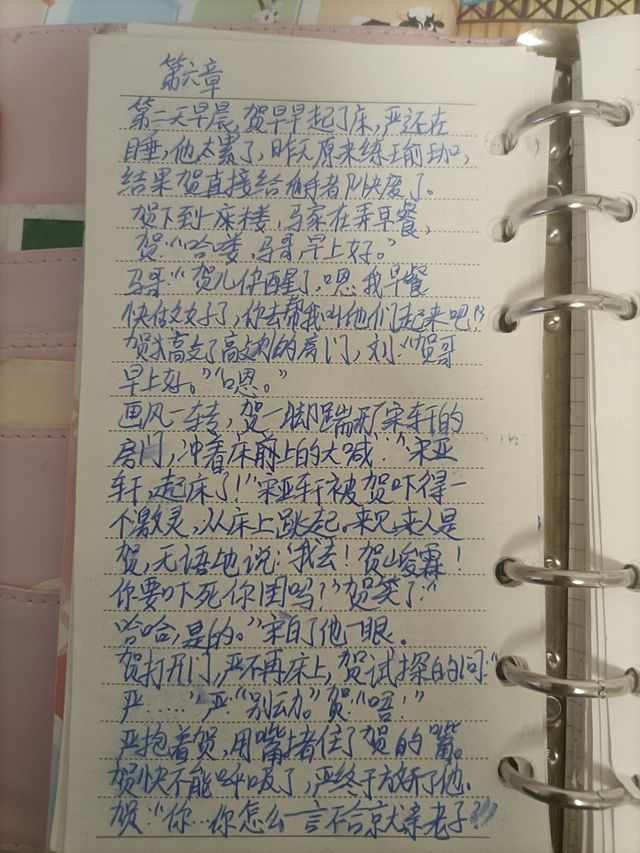 第六章
第二天早晨,贺早早起了床,严还在
目垂,他太累了,昨天原来练王俞王加,
结果贺直接给 队快废了。
贺下到一床楼,马家在弄早餐,
贺:“哈喽,马哥早上好。”
马哥:“贺儿你醒了,嗯,我早餐
快做好了,你去帮我叫他们起来吧!”
贺 高 了高 的房门,刘:“贺哥
早上好。”“嗯。”
画风一转,贺一脚踹开了宋轩的
房门,冲着床前上的大喊:“宋亚
轩,起床了!”宋亚轩被贺吓得一
个激灵,从床上跳起。来见来人是
贺,无语地说:“我去!贺峻霖!
你要吓死你 吗?”贺笑了:“
哈哈,是的。”宋白了他一眼。
贺打开门,严不再床上,贺试探的问:“
严……”严:“别动。”贺:“唔!”
严抱着贺,用嘴堵住了贺的嘴。
贺快不能呼吸了,严终于放开了他。
贺:“你…你怎么一言不合就亲老子